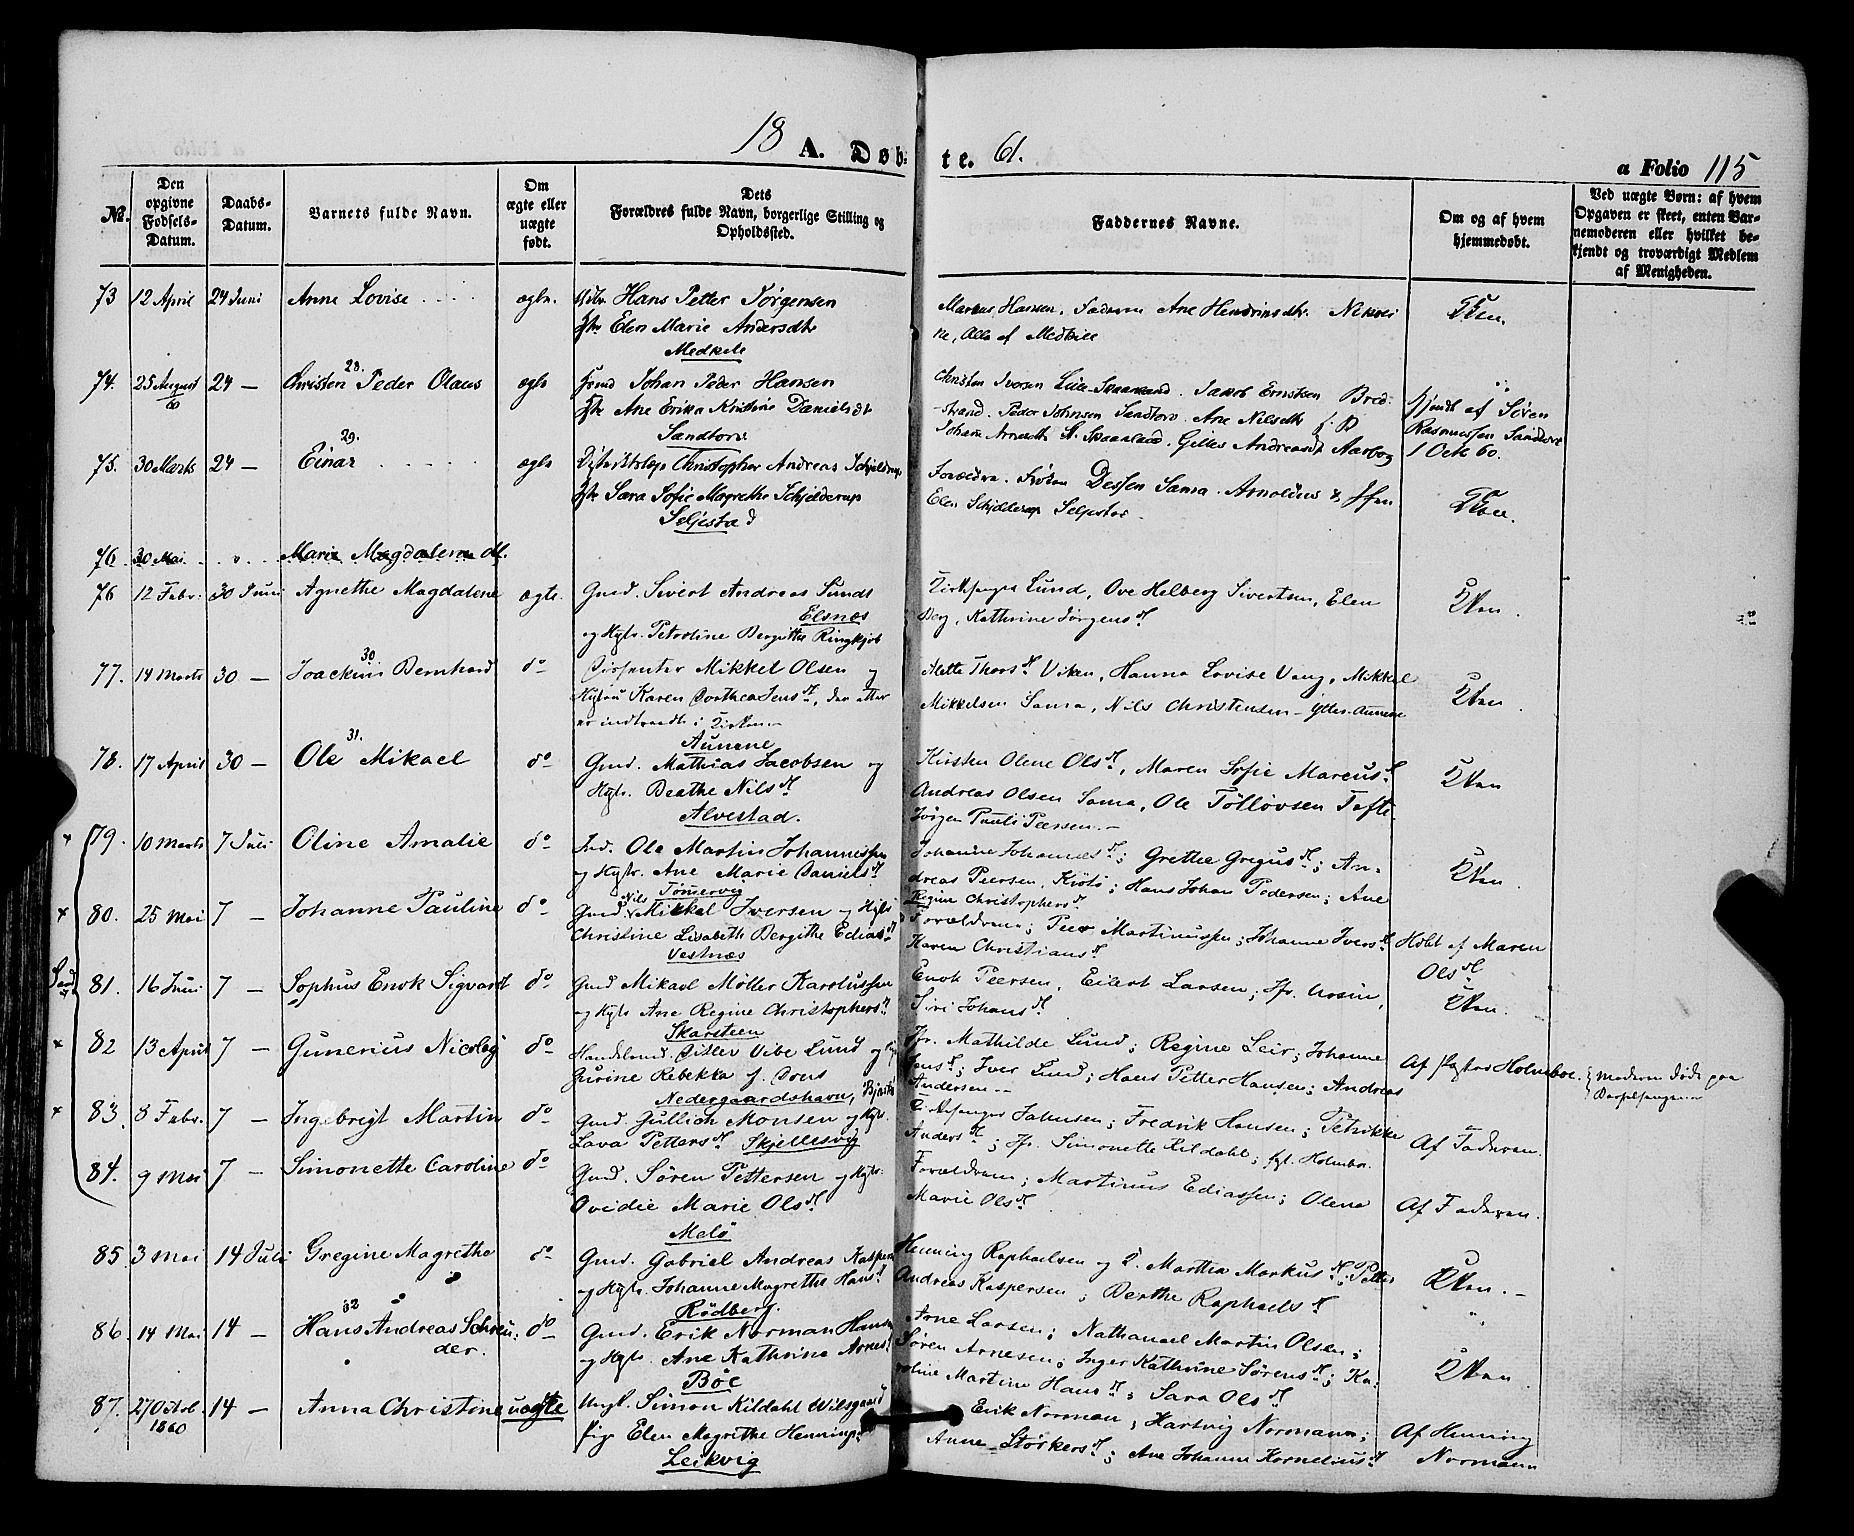 18 A. Døb-
te. 61.
a Folio 115
№.
Den opgivne Fødsels-Datum.
Daabs-Datum.
Barnets fulde Navn.
Om ægte eller uægte født.
Dets Forældres fulde Navn, borgerlige Stilling og Opholdssted.
Faddernes Navne.
Om og af hvem hjemmedøbt.
Ved uægte Børn: af hvem Opgaven er skeet, enten Barnemoderen eller hvilket bekjendt og troværdigt Medlem af Menigheden.
73 12 April 24 Juni Anne Lovise ægte. Hans Petter Jørgensen
Elen Marie Andersdtr
Medkile
Markus Hansen, Faderen Ane
Alle af Medkile
74. 25 August 60 24 — 28. Christen Peder Olaus ægte Johan Peder Hansen
Ane Erika Kristine Danielsdt
Sandtorv
Christen Iversen Jakob Erntsen Bred-
strand. Peder Johnsen Sandtorv. Ane Nilsdtr
Johanne Andreasdt Aarbog
af Søren
Rasmussen Sandtorv
1 Octb 60.
75. 30 Marts 24 — 29. Einar ægte Christopher Andreas Schjelderup
Sara Sofie Magrethe Schjelderup
Seljestad
Forældrene. Frøken Dessen Sama. Arnoldus &
Elen Schjelderup Seljestad
76. 30 Mai Marie Magdalene
76 12 Febr. 30 Juni Agnethe Magdalene ægte. Gmd. Sivert Andreas Lunds
Elsnæs
og Hst. Petroline Bergitte Ringkjøb
Kirkesanger Lund, Ove Helberg Sivertsen, Elen
Berg, Kathrine Jørgensd.
77. 14 Marts 30 — 30 Joackim Bernhard do Mikkel Olsen og
Karen Dorthea Jensd, der atter
er indtraadt i Kirken.
Aunene
Mette Thorsd Viken, Hanna Lovise Vang, Mikkel
Mikkelsen Sama, Nils Christensen Ytter-Aunene
78. 17 April 30 — 31. Ole Mikael do Gmd. Mathias Jacobsen og
Hst. Berthe Nilsd
Alvestad.
Kirsten Olene Olsd, Maren Sofie Marcusd
Andreas Olsen Sama, Ole Tølløvsen Tofte.
Jørgen Pauli Peersen.
79. 10 Marts 7 Juli Oline Amalie do Ind. Ole Martin Johannessen
og Hst. Ane Marie Danielsd
Tømmervig
Johanne Johannesd; Grethe Gregusd; An-
dreas Peersen, Kjøtø; Hans Johan Pedersen; Ane
Regine Christophersd
80. 25 Mai 7 — Johanne Pauline do Gmd. Nils Mikkel Iversen og Hst.
Christine Lisabeth Bergithe Ediasd
Vestnæs
Forældrene; Peer Martinussen; Johanne Iversd
Karen Christiansd
Hdbt af Maren
Olsd
81. 16 Juni 7 — Sophus Enok Sigvardt do Gmd Mikael Møller Karolussen
og Hst. Ane Regine Christophersd
Skarsteen
Enok Peersen, Eilert Larsen; Jfr. Ursin,
Siri Johansd
82 13 April 7 — Gunerius Nicolaj do Handelsmd. Ditlev Vibe Lund og
Jurine Rebekka f. Dons
Nedergaardshavn,
Jfr. Mathilde Lund; Regine Leir; Johanne
Jensd; Iver Lund; Hans Petter Hansen; Andreas
Andersen
Af Pastor Holmboe.
Moderen døde paa
Barselsengen
83. 8 Febr. 7 — Ingebrigt Martin do Gmd. Gullich Monsen og Hst.
Lava Pettersd Skjellesvig
Kirkesanger Johnsen; Fredrik Hansen; Petrikke
Andersd; Jfr. Simonette Kildahl; Holmboe.
Af Faderen.
84. 9 Mai 7 — Simonette Caroline do Gmd. Søren Pettersen og Hst.
Ovidie Marie Olsd
Melø
Forældrene; Martinus Ediassen; Olene
Marie Olsd
Af Faderen.
85. 3 Mai 14 Juli Gregine Magrethe do Gmd. Gabriel Andreas Kaspersen
og Hst. Johanne Magrethe Hansd
Rødberg.
Henning Raphaelsen og K. Martha Markusd; Petter
Andreas Kaspersen; Berthe Raphaelsd
86. 14 Mai 14 — 32 Hans Andreas Schreu-
der. do Gmd. Erik Norman Hansen
og Hst. Ane Kathrine Arnesd
Bøe
Arne Larsen; Nathanael Martin Olsen;
Søren Arnesen; Inger Kathrine Sørensd; Ka-
roline Martine Hansd; Sara Olsd
87. 27 Octob. 1860 14 — Anna Christine uægte Ungk. Simon Kildahl Wilsgaard
Pige Elen Magrethe Hennings
Leikvig
Erik Norman; Hartvig Normann;
Anne Størkersd; Ane Johanne Korneliusd
Af Henning
Normann